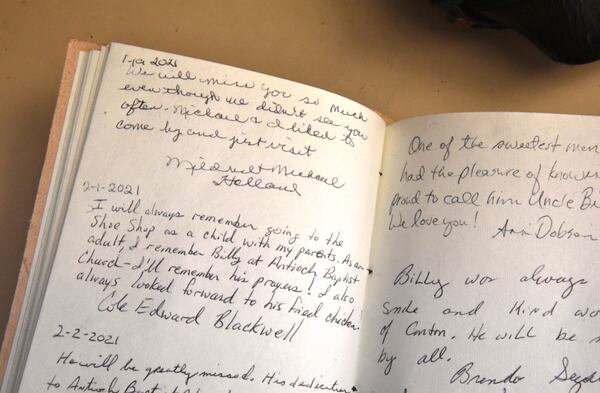 2021
We will miss you so much
even though we didn't see you
often. Michael & I liked to
come by and just visit
Mildred & Michael
Holland
2-1-2021
I will always remember going to the
Shoe Shop as a child with my parents. As an
adult, I remember Billy at Antioch Baptist
Church - I'll remember his prayers! I also
always looked forward to his fried chicken.
Cole Edward Blackwell
2-2-2021
He will be greatly missed. His dedication
to Antioch
One of the sweetest men
had the pleasure of knowin
proud to call him Uncle Bi
We love you!
Ann Dobson
Billy was always
smile and kind wo
of Canton. He will be
by all.
Brenda